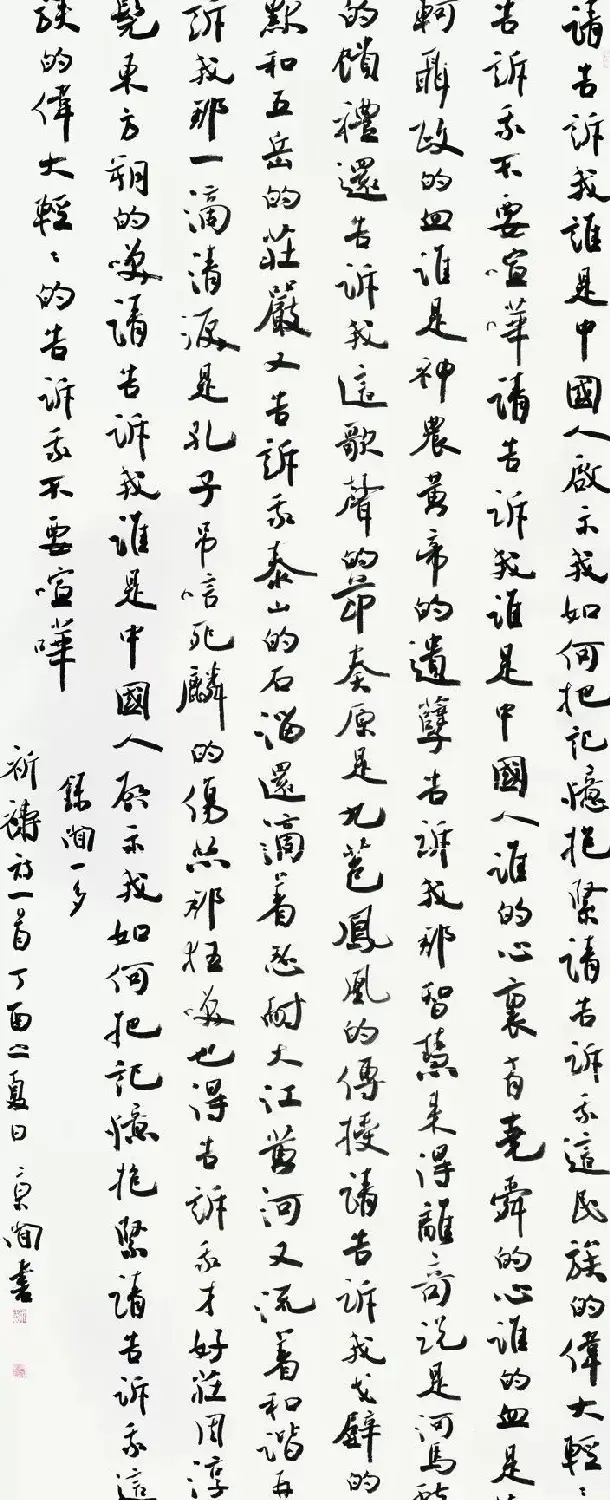 請告訴我誰是中國人啟示我如何把記憶抱緊請告訴我這民族的偉大輕〻
告訴我不要喧嘩請告訴我誰是中國人誰的心裏有堯舜的心誰的血是
軻聶政的血誰是神農黃帝的遺孽告訴我那智慧來得離奇說是河馬
的饋禮還告訴我這歌聲的節奏原是九苞鳳凰的傳授請告訴我戈壁的
默和五岳的莊嚴又告訴我泰山的石溜還滴着忍耐大江黃河又流着和諧再
訴我那一滴清淚是孔子弔唁死麟的傷悲那狂笑也得告訴我才好莊周淳
髡東方朔的笑請告訴我誰是中國人啟示我如何把記憶抱緊請告訴我這
族的偉大輕〻的告訴我不要喧嘩
錄聞一多
祈禱詩一首丁酉之夏日 聞書